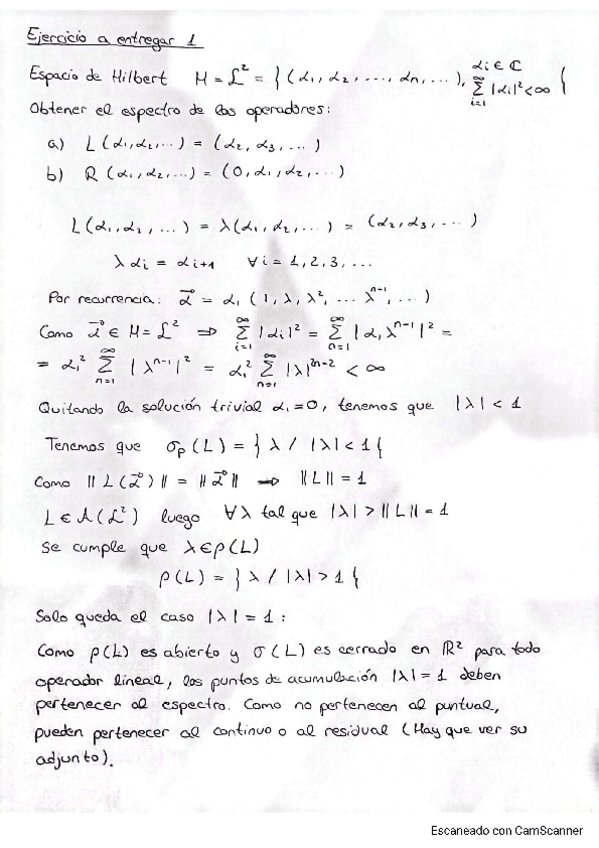 Ejercicio a entregar 1
Espacio de Hilbert H = ℒ² = } (α₁, α₂, ..., αₙ, ...), αᵢ ∈ ℂ  ∑_{i=1}^{∞} |αᵢ|² < ∞ {
Obtener el espectro de los operadores:
a) L(α₁, α₂, ...) = (α₂, α₃, ...)
b) R(α₁, α₂, ...) = (0, α₁, α₂, ...)
L(α₁, α₂, ...) = λ(α₁, α₂, ...) = (α₂, α₃, ...)
λ αᵢ = αᵢ₊₁ ∀ i = 1, 2, 3, ...
Por recurrencia: α⃗ = α₁ (1, λ, λ², ... λⁿ⁻¹, ...)
Como α⃗ ∈ H = ℒ² ⇒ ∑_{i=1}^{∞} |αᵢ|² = ∑_{n=1}^{∞} |α₁ λⁿ⁻¹|² =
= α₁² ∑_{n=1}^{∞} |λⁿ⁻¹|² = α₁² ∑_{n=1}^{∞} |λ|²ⁿ⁻² < ∞
Quitando la solución trivial α₁ = 0, tenemos que |λ| < 1
Tenemos que σₚ(L) = } λ / |λ| < 1 {
Como ||L(α⃗)|| = ||α⃗|| → ||L|| = 1
L ∈ A(ℒ²) luego ∀ λ tal que |λ| > ||L|| = 1
Se cumple que λ ∈ ρ(L)
ρ(L) = } λ / |λ| > 1 {
Solo queda el caso |λ| = 1:
Como ρ(L) es abierto y σ(L) es cerrado en ℝ² para todo
operador lineal, los puntos de acumulación |λ| = 1 deben
pertenecer al espectro. Como no pertenecen al puntual,
pueden pertenecer al continuo o al residual (Hay que ver su
adjunto).
Escaneado con CamScanner